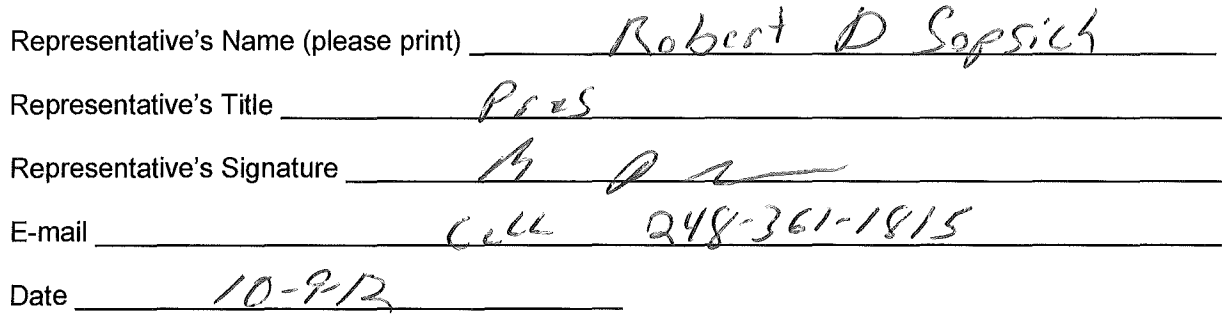 Representative's Name (please print) Robert D Sopsich
Representative's Title Pres
Representative's Signature
E-mail Cell 248-361-1815
Date 10-9-12